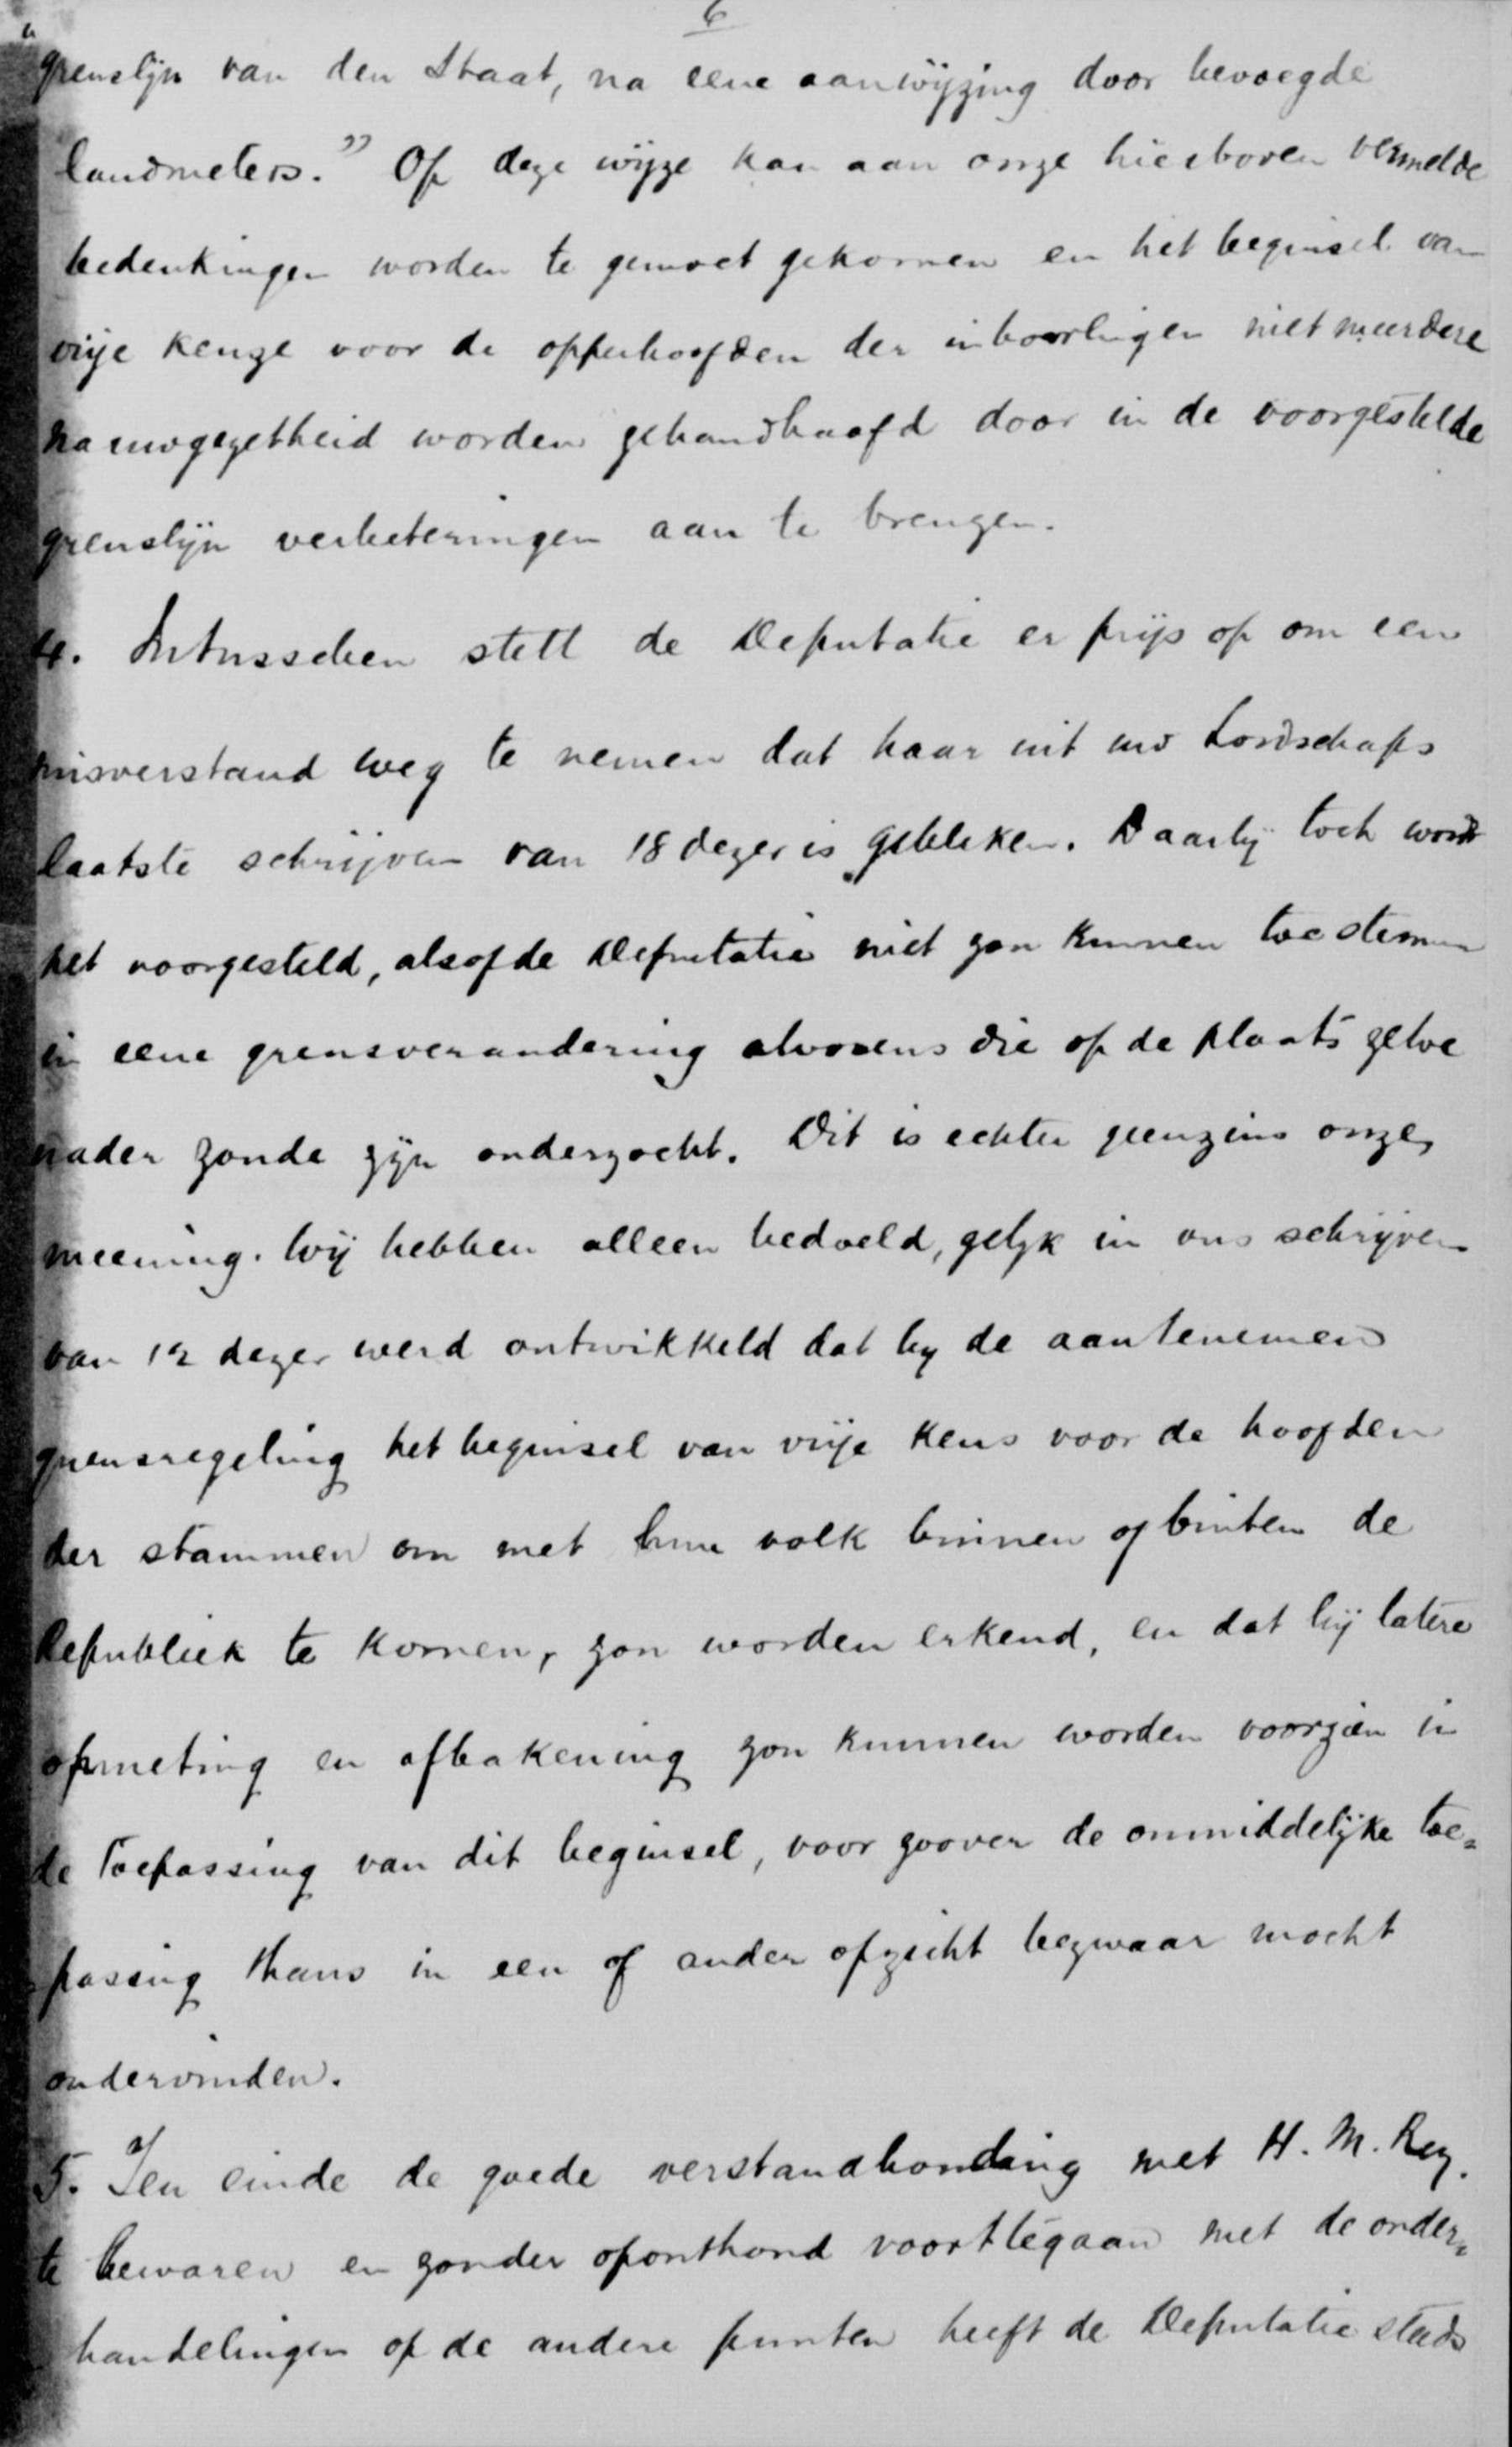 6
"grenslijn van den Staat, na eene aanwijzing door bevoegde
landmeters." Op deze wijze kan aan onze hierboven vermelde
bedenkingen worden te gemoet gekomen en het beginsel van
vrije keuze voor de opperhoofden der inboorlingen met meerdere
nauwgezetheid worden gehandhaafd door in de voorgestelde
grenslijn verbeteringen aan te brengen.
4. Intusschen stelt de Deputatie er prijs op om een
misverstand weg te nemen dat haar uit uw Lordschaps
laatste schrijven van 18 dezer is gebleken. Daarbij toch wordt
het voorgesteld, alsof de Deputatie niet zou kunnen toestemmen
in eene grensverandering alvorens die op de plaats zelve
nader zoude zijn onderzocht. Dit is echter geenzins onze
meening. Wij hebben alleen bedoeld, gelijk in ons schrijven
van 12 dezer werd ontwikkeld dat by de aantenemen
grensregeling het beginsel van vrije keus voor de hoofden
der stammen om met hun volk binnen of buiten de
Republiek te komen, zou worden erkend, en dat bij latere
opmeting en afbakening zou kunnen worden voorzien in
de toepassing van dit beginsel, voor zoover de onmiddelijke toe=
=passing thans in een of ander opzicht bezwaar mocht
ondervinden.
5. Ten einde de goede verstandhouding met H. M. Reg.
te bewaren en zonder oponthoud voorttegaan met de onder=
handelingen op de andere punten heeft de Deputatie steeds